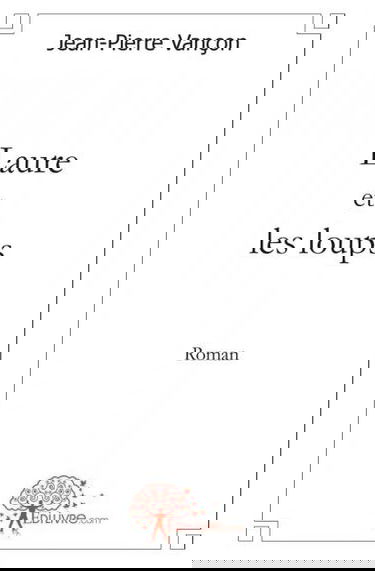 Jean-Pierre Vançon
Laure
et
les loups
Roman
EDILIVRE.com